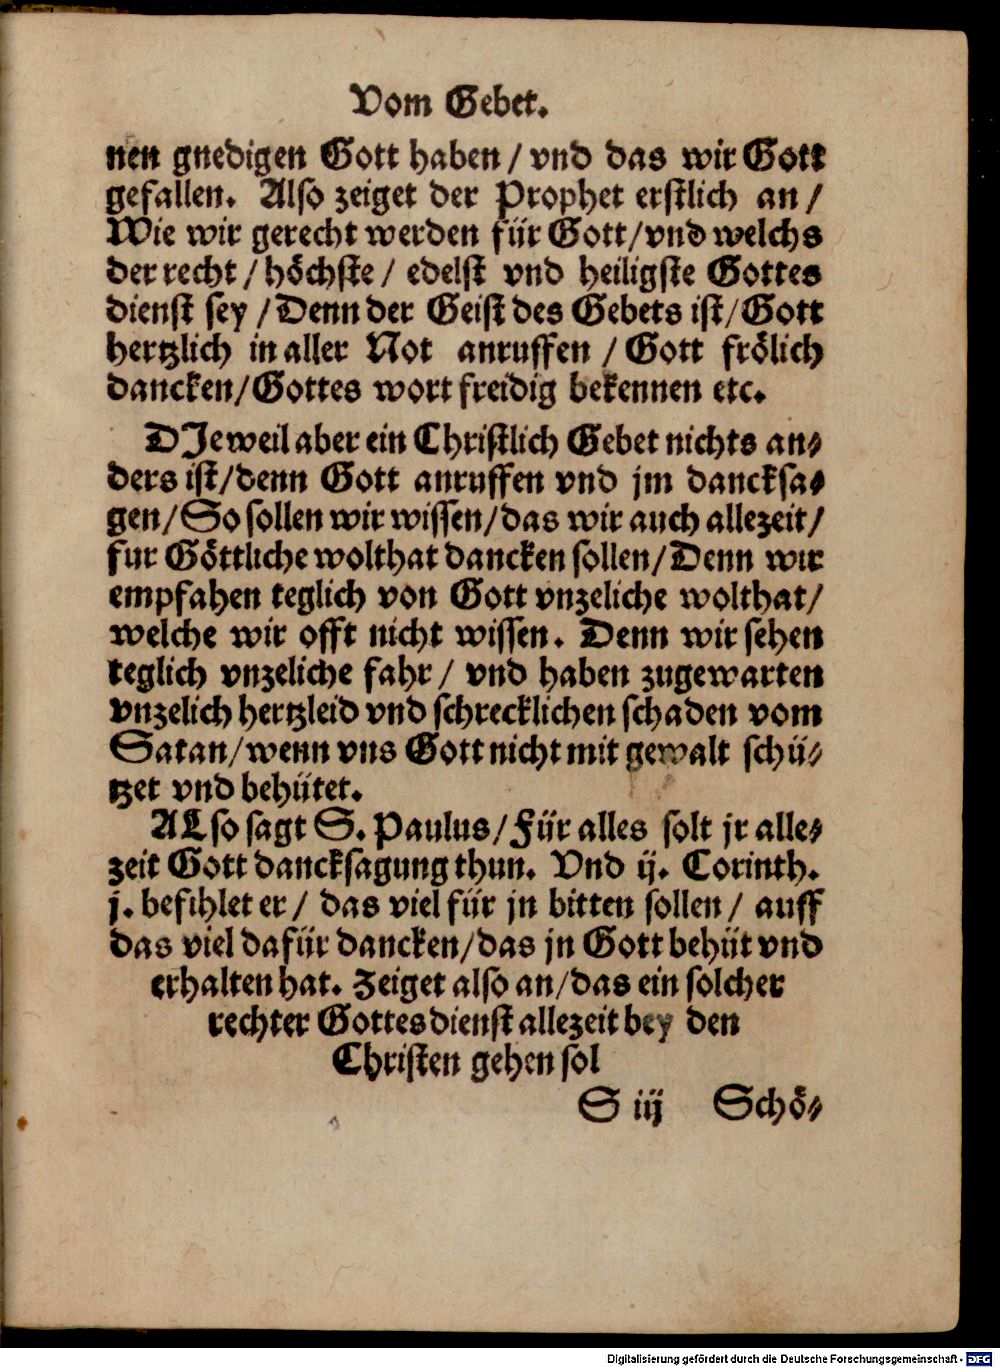 Vom Gebet.
nen gnedigen Gott haben / vnd das wir Gott
gefallen. Also zeiget der Prophet erstlich an /
Wie wir gerecht werden für Gott / vnd welchs
der recht / höchste / edelst vnd heiligste Gottes
dienst sey / Denn der Geist des Gebets ist / Gott
hertzlich in aller Not anruffen / Gott frölich
dancken / Gottes wort freidig bekennen etc.
DJeweil aber ein Christlich Gebet nichts an⸗
ders ist / denn Gott anruffen vnd jm dancksa⸗
gen / So sollen wir wissen / das wir auch allezeit /
fur Göttliche wolthat dancken sollen / Denn wir
empfahen teglich von Gott vnzeliche wolthat /
welche wir offt nicht wissen. Denn wir sehen
teglich vnzeliche fahr / vnd haben zugewarten
vnzelich hertzleid vnd schrecklichen schaden vom
Satan / wenn vns Gott nicht mit gewalt schü⸗
tzet vnd behütet.
ALso sagt S. Paulus / Für alles solt jr alle⸗
zeit Gott dancksagung thun. Vnd ij. Corinth.
j. befihlet er / das viel für jn bitten sollen / auff
das viel dafür dancken / das jn Gott behüt vnd
erhalten hat. Zeiget also an / das ein solcher
rechter Gottesdienst allezeit bey den
Christen gehen sol
S iij Schö⸗
Digitalisierung gefördert durch die Deutsche Forschungsgemeinschaft - DFG